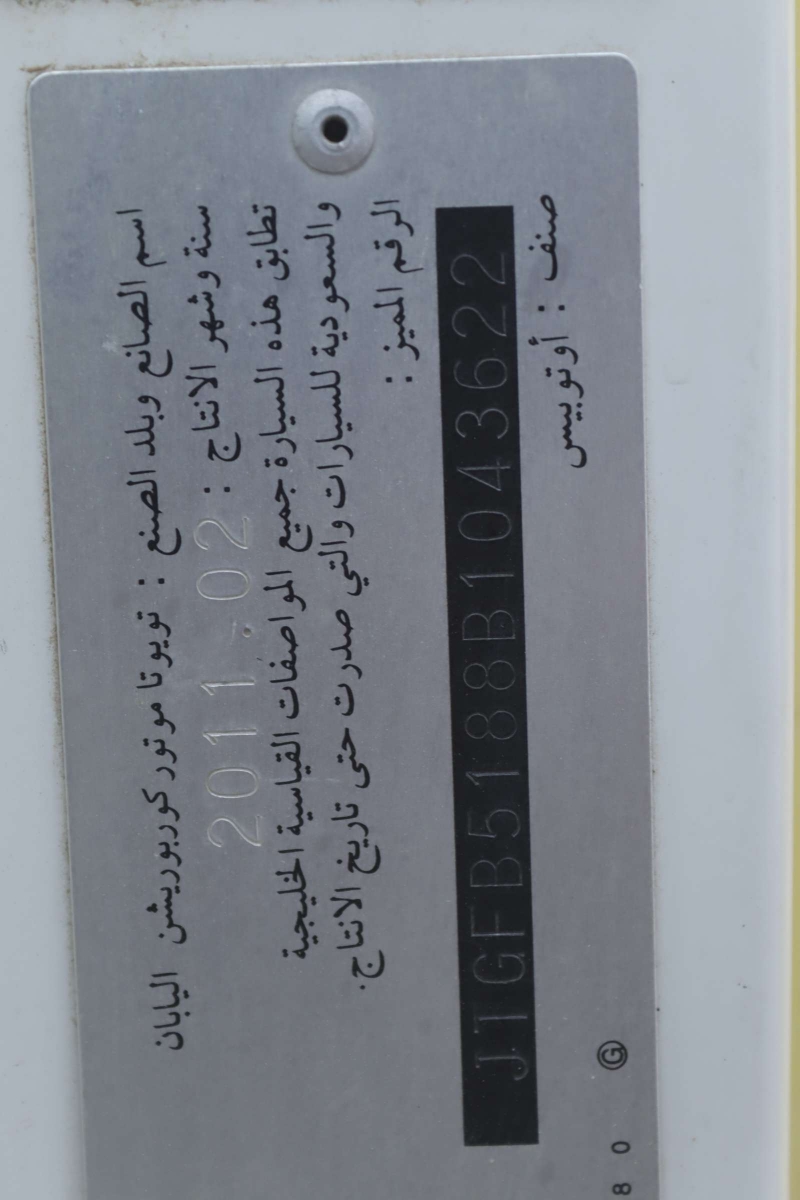 اسم الصانع وبلد الصنع : تويوتا موتور كوربوريشن اليابان
سنة وشهر الانتاج : 2011.02
تطابق هذه السيارة جميع المواصفات القياسية الخليجية
والسعودية للسيارات والتي صدرت حتى تاريخ الانتاج.
الرقم المميز :
JTGFB5188B1043622
صنف : أوتوبيس
80 Ⓖ